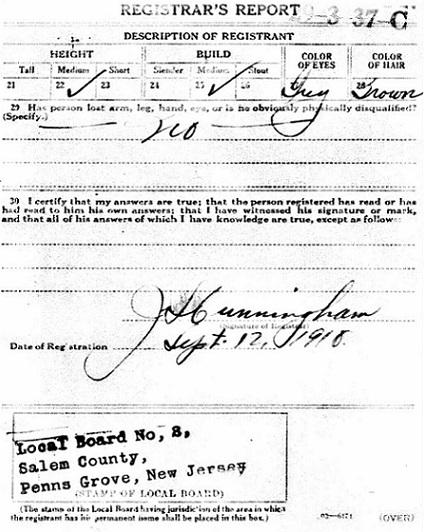 REGISTRAR'S REPORT 37-C
DESCRIPTION OF REGISTRANT
HEIGHT BUILD COLOR OF EYES COLOR OF HAIR
Tall Medium Short Slender Medium Stout
21 22 ✓ 23 24 25 ✓ 26 Grey 28 Brown
29 Has person lost arm, leg, hand, eye, or is he obviously physically disqualified?
(Specify.) No
30 I certify that my answers are true; that the person registered has read or has
had read to him his own answers; that I have witnessed his signature or mark,
and that all of his answers of which I have knowledge are true, except as follows:
J Cunningham
(Signature of Registrar)
Date of Registration Sept. 12, 1918.
Local Board No, 2,
Salem County,
Penns Grove, New Jersey
(STAMP OF LOCAL BOARD)
(The stamp of the Local Board having jurisdiction of the area in which
the registrant has his permanent home shall be placed in this box.)
(OVER)